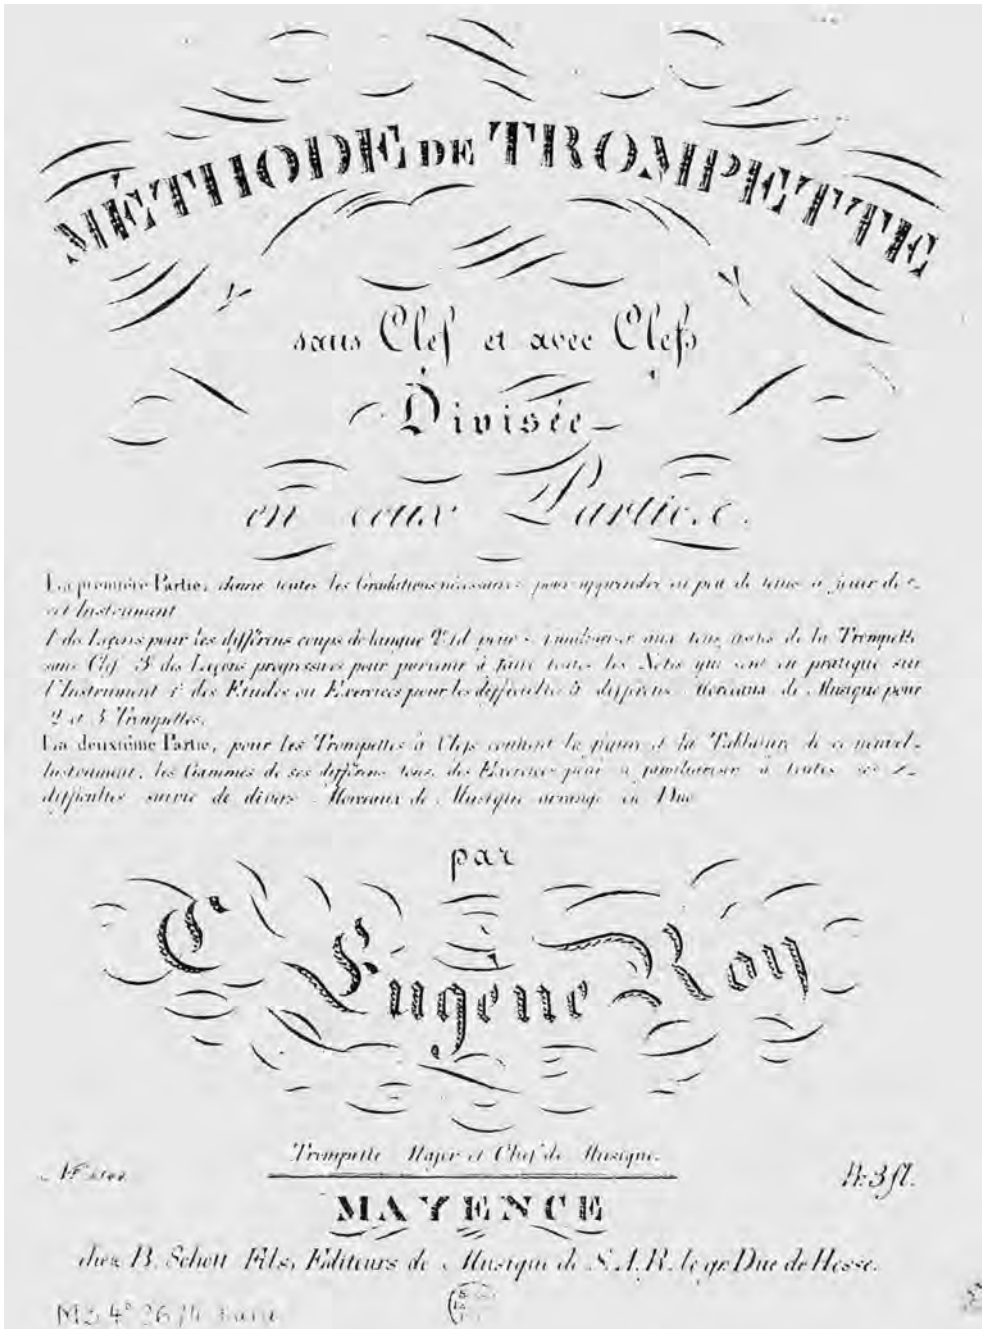 MÉTHODE DE TROMPETTE
sans Clef et avec Clefs
Divisée
en deux Parties.
La première Partie, donne toutes les Gradations nécessaires pour apprendre en peu de tems à jouer de c-
et Instrument
1° des Leçons pour les différens coups de langue 2° id pour se familiariser aux tons de la Trompette
sans Clef 3° des Leçons progressives pour parvenir à faire toutes les Notes qui sont en pratique sur
l'Instrument 4° des Etudes ou Exercices pour les difficultés 5° différens Morceaux de Musique pour
2 et 3 Trompettes.
La deuxième Partie, pour les Trompettes à Clefs contient la figure et la Tablature de ce nouvel-
Instrument, les Gammes de ses différens tons, des Exercices pour se familiariser à toutes ses
difficultés suivie de divers Morceaux de Musique arrangé en Duo
par
C Eugène Roy
Trompette Major et Chef de Musique.
Pr. 3 fl.
MAYENCE
chez B. Schott Fils, Editeurs de Musique de S. A. R. le gr. Duc de Hesse.